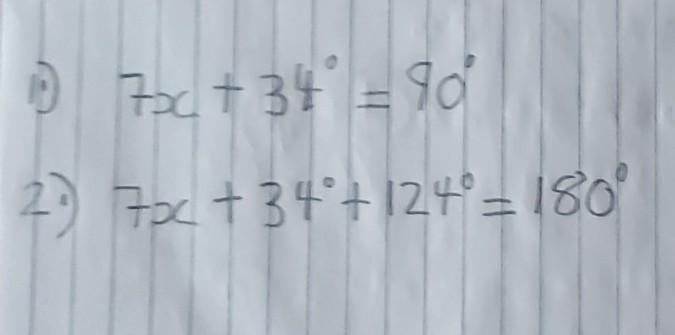 1) 7x + 34° = 90°
2.) 7x + 34° + 124° = 180°